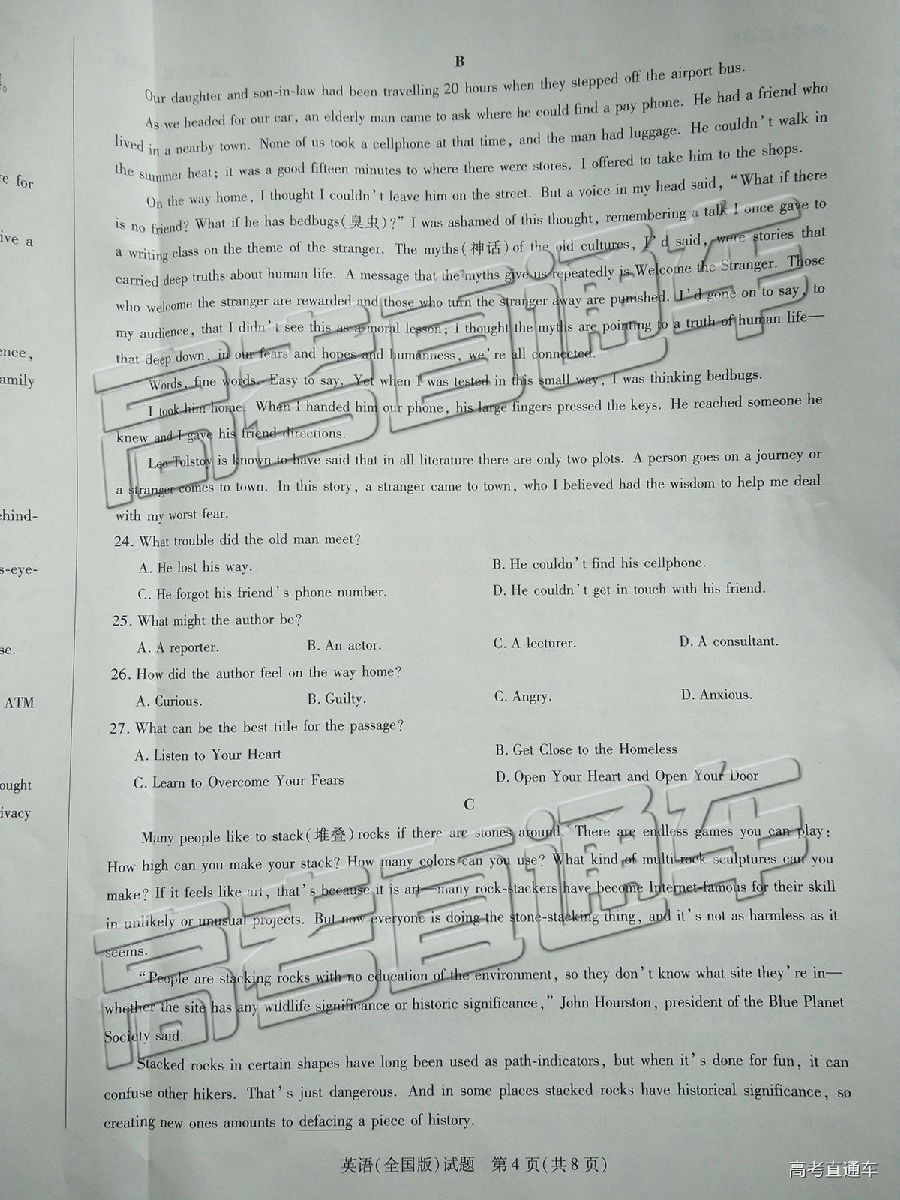 B
Our daughter and son-in-law had been travelling 20 hours when they stepped off the airport bus.
As we headed for our car, an elderly man came to ask where he could find a pay phone. He had a friend who
lived in a nearby town. None of us took a cellphone at that time, and the man had luggage. He couldn't walk in
the summer heat; it was a good fifteen minutes to where there were stores. I offered to take him to the shops.
On the way home, I thought I couldn't leave him on the street. But a voice in my head said, "What if there
is no friend? What if he has bedbugs(臭虫)?" I was ashamed of this thought, remembering a talk I once gave to
a writing class on the theme of the stranger. The myths(神话)of the old cultures, I'd said, were stories that
carried deep truths about human life. A message that the myths give us repeatedly is Welcome the Stranger. Those
who welcome the stranger are rewarded and those who turn the stranger away are punished. I'd gone on to say, to
my audience, that I didn't see this as a moral lesson; I thought the myths are pointing to a truth of human life—
that deep down, in our fears and hopes and humanness, we're all connected.
Words, fine words. Easy to say. Yet when I was tested in this small way, I was thinking bedbugs.
I took him home. When I handed him our phone, his large fingers pressed the keys. He reached someone he
knew and I gave his friend directions.
Leo Tolstoy is known to have said that in all literature there are only two plots. A person goes on a journey or
a stranger comes to town. In this story, a stranger came to town, who I believed had the wisdom to help me deal
with my worst fear.
24. What trouble did the old man meet?
A. He lost his way. B. He couldn't find his cellphone.
C. He forgot his friend's phone number. D. He couldn't get in touch with his friend.
25. What might the author be?
A. A reporter. B. An actor. C. A lecturer. D. A consultant.
26. How did the author feel on the way home?
A. Curious. B. Guilty. C. Angry. D. Anxious.
27. What can be the best title for the passage?
A. Listen to Your Heart B. Get Close to the Homeless
C. Learn to Overcome Your Fears D. Open Your Heart and Open Your Door
C
Many people like to stack(堆叠)rocks if there are stones around. There are endless games you can play:
How high can you make your stack? How many colors can you use? What kind of multi-rock sculptures can you
make? If it feels like art, that's because it is art—many rock-stackers have become Internet-famous for their skill
in unlikely or unusual projects. But now everyone is doing the stone-stacking thing, and it's not as harmless as it
seems.
"People are stacking rocks with no education of the environment, so they don't know what site they're in—
whether the site has any wildlife significance or historic significance," John Hourston, president of the Blue Planet
Society said.
Stacked rocks in certain shapes have long been used as path-indicators, but when it's done for fun, it can
confuse other hikers. That's just dangerous. And in some places stacked rocks have historical significance, so
creating new ones amounts to defacing a piece of history.
英语(全国版)试题 第4页(共8页)
高考直通车
高考直通车
高考直通车
e for
ive a
ence,
amily
ehind-
s-eye-
se.
ATM
ought
ivacy